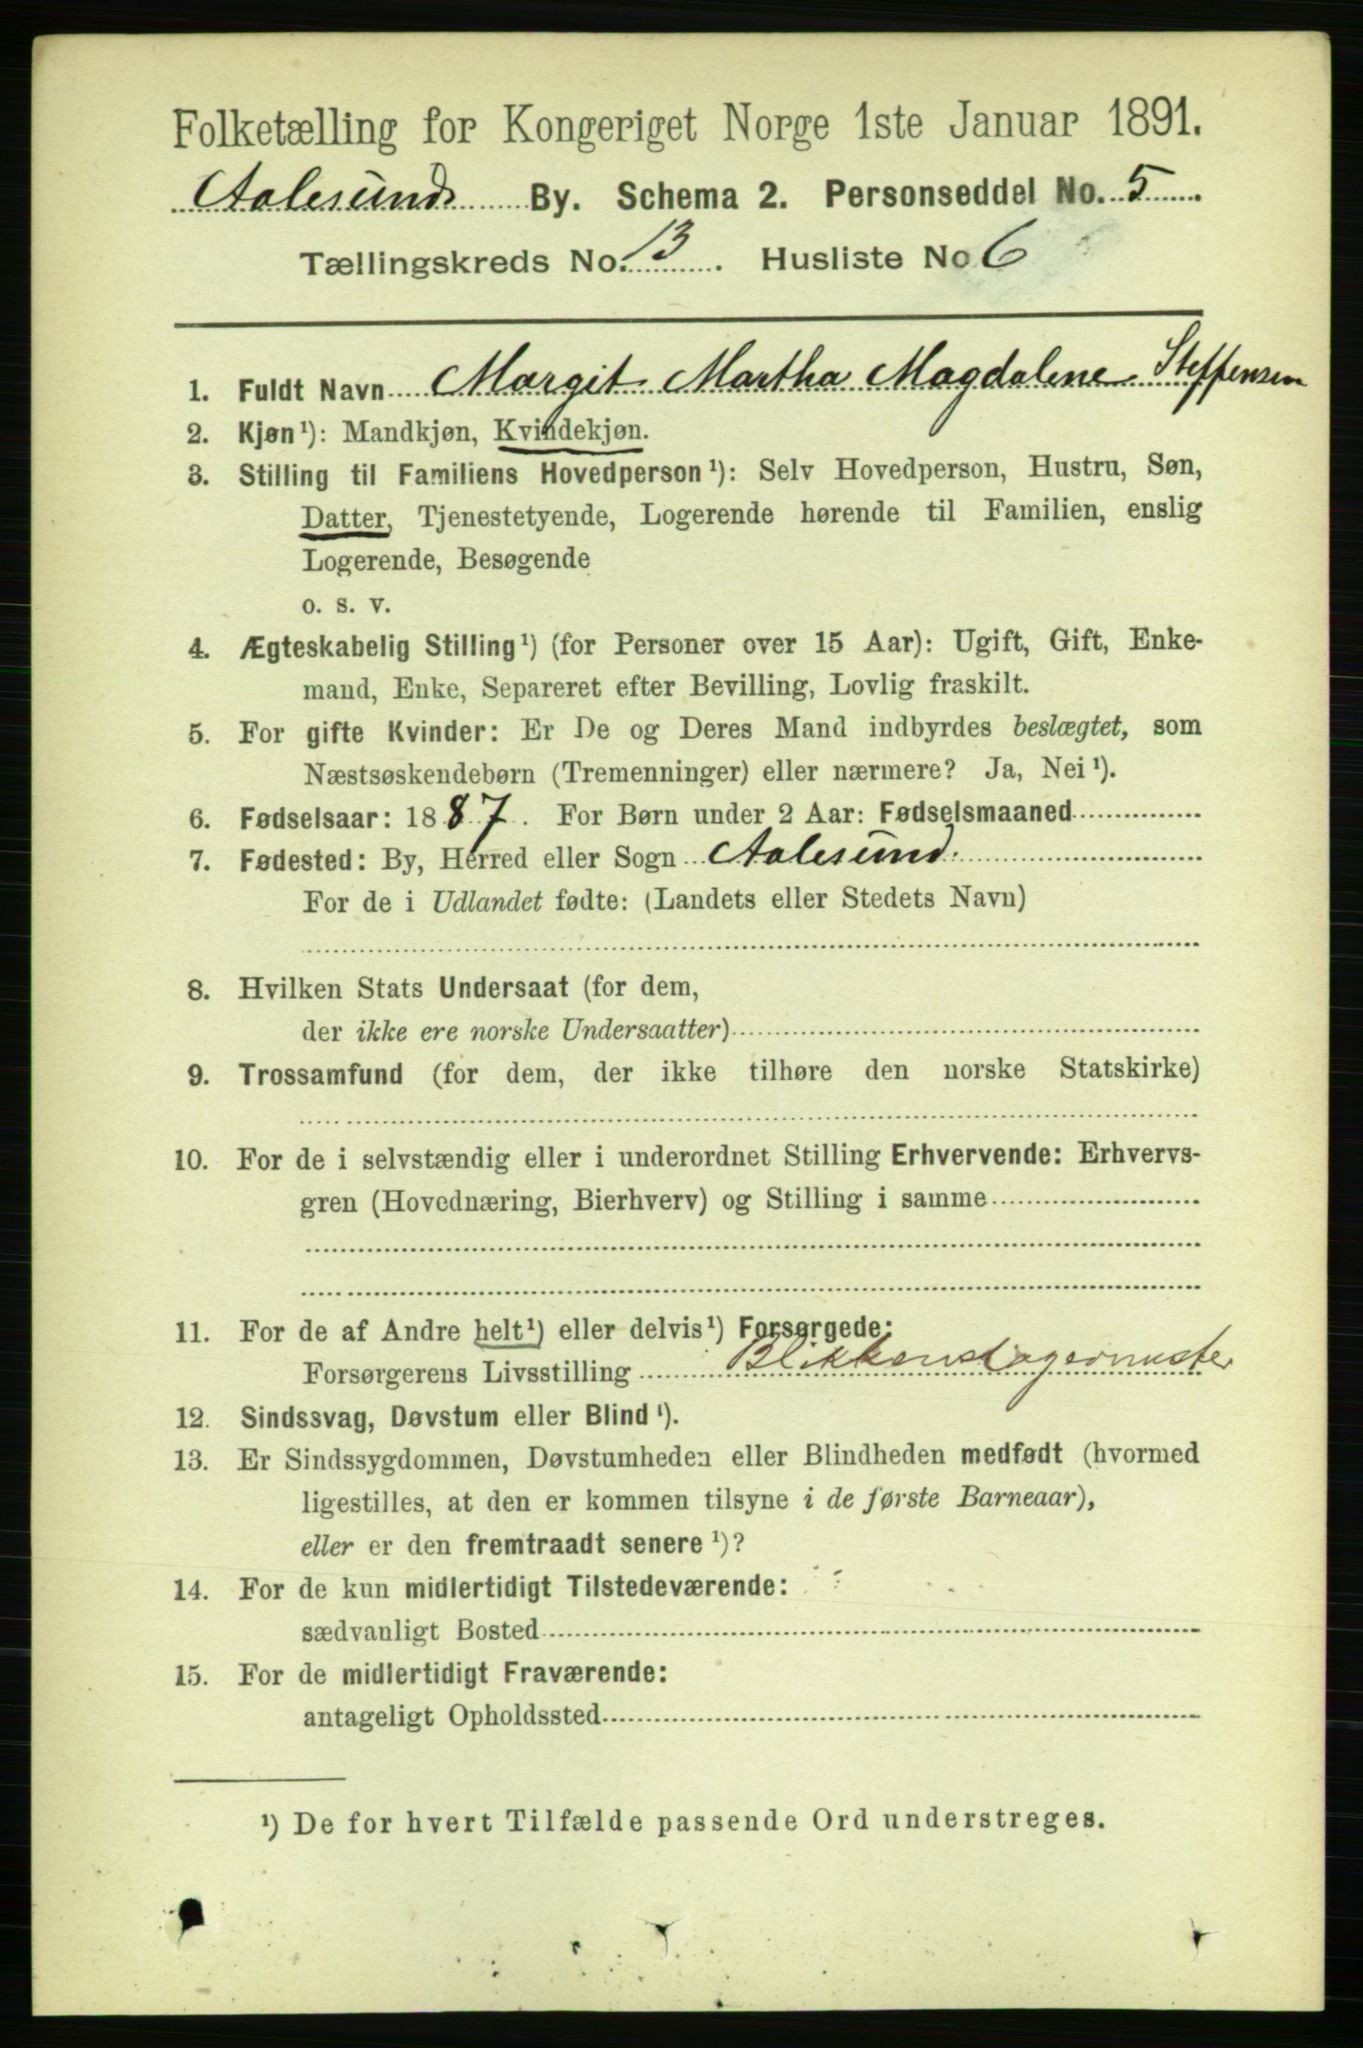 Folketælling for Kongeriget Norge 1ste Januar 1891.
Aalesunds By. Schema 2. Personseddel No. 5
Tællingskreds No. 13. Husliste No 6
1. Fuldt Navn Margit Martha Magdalene Steffensen
2. Kjøn¹): Mandkjøn, Kvindekjøn.
3. Stilling til Familiens Hovedperson¹): Selv Hovedperson, Hustru, Søn,
Datter, Tjenestetyende, Logerende hørende til Familien, enslig
Logerende, Besøgende
o. s. v.
4. Ægteskabelig Stilling¹) (for Personer over 15 Aar): Ugift, Gift, Enke-
mand, Enke, Separeret efter Bevilling, Lovlig fraskilt.
5. For gifte Kvinder: Er De og Deres Mand indbyrdes beslægtet, som
Næstsøskendebørn (Tremenninger) eller nærmere? Ja, Nei¹).
6. Fødselsaar: 1887. For Børn under 2 Aar: Fødselsmaaned
7. Fødested: By, Herred eller Sogn Aalesund.
For de i Udlandet fødte: (Landets eller Stedets Navn)
8. Hvilken Stats Undersaat (for dem,
der ikke ere norske Undersaatter)
9. Trossamfund (for dem, der ikke tilhøre den norske Statskirke)
10. For de i selvstændig eller i underordnet Stilling Erhvervende: Erhvervs-
gren (Hovednæring, Bierhverv) og Stilling i samme
11. For de af Andre helt¹) eller delvis¹) Forsørgede:
Forsørgerens Livsstilling Blikkenslagermester
12. Sindssvag, Døvstum eller Blind¹).
13. Er Sindssygdommen, Døvstumheden eller Blindheden medfødt (hvormed
ligestilles, at den er kommen tilsyne i de første Barneaar),
eller er den fremtraadt senere¹)?
14. For de kun midlertidigt Tilstedeværende:
sædvanligt Bosted
15. For de midlertidigt Fraværende:
antageligt Opholdssted
¹) De for hvert Tilfælde passende Ord understreges.